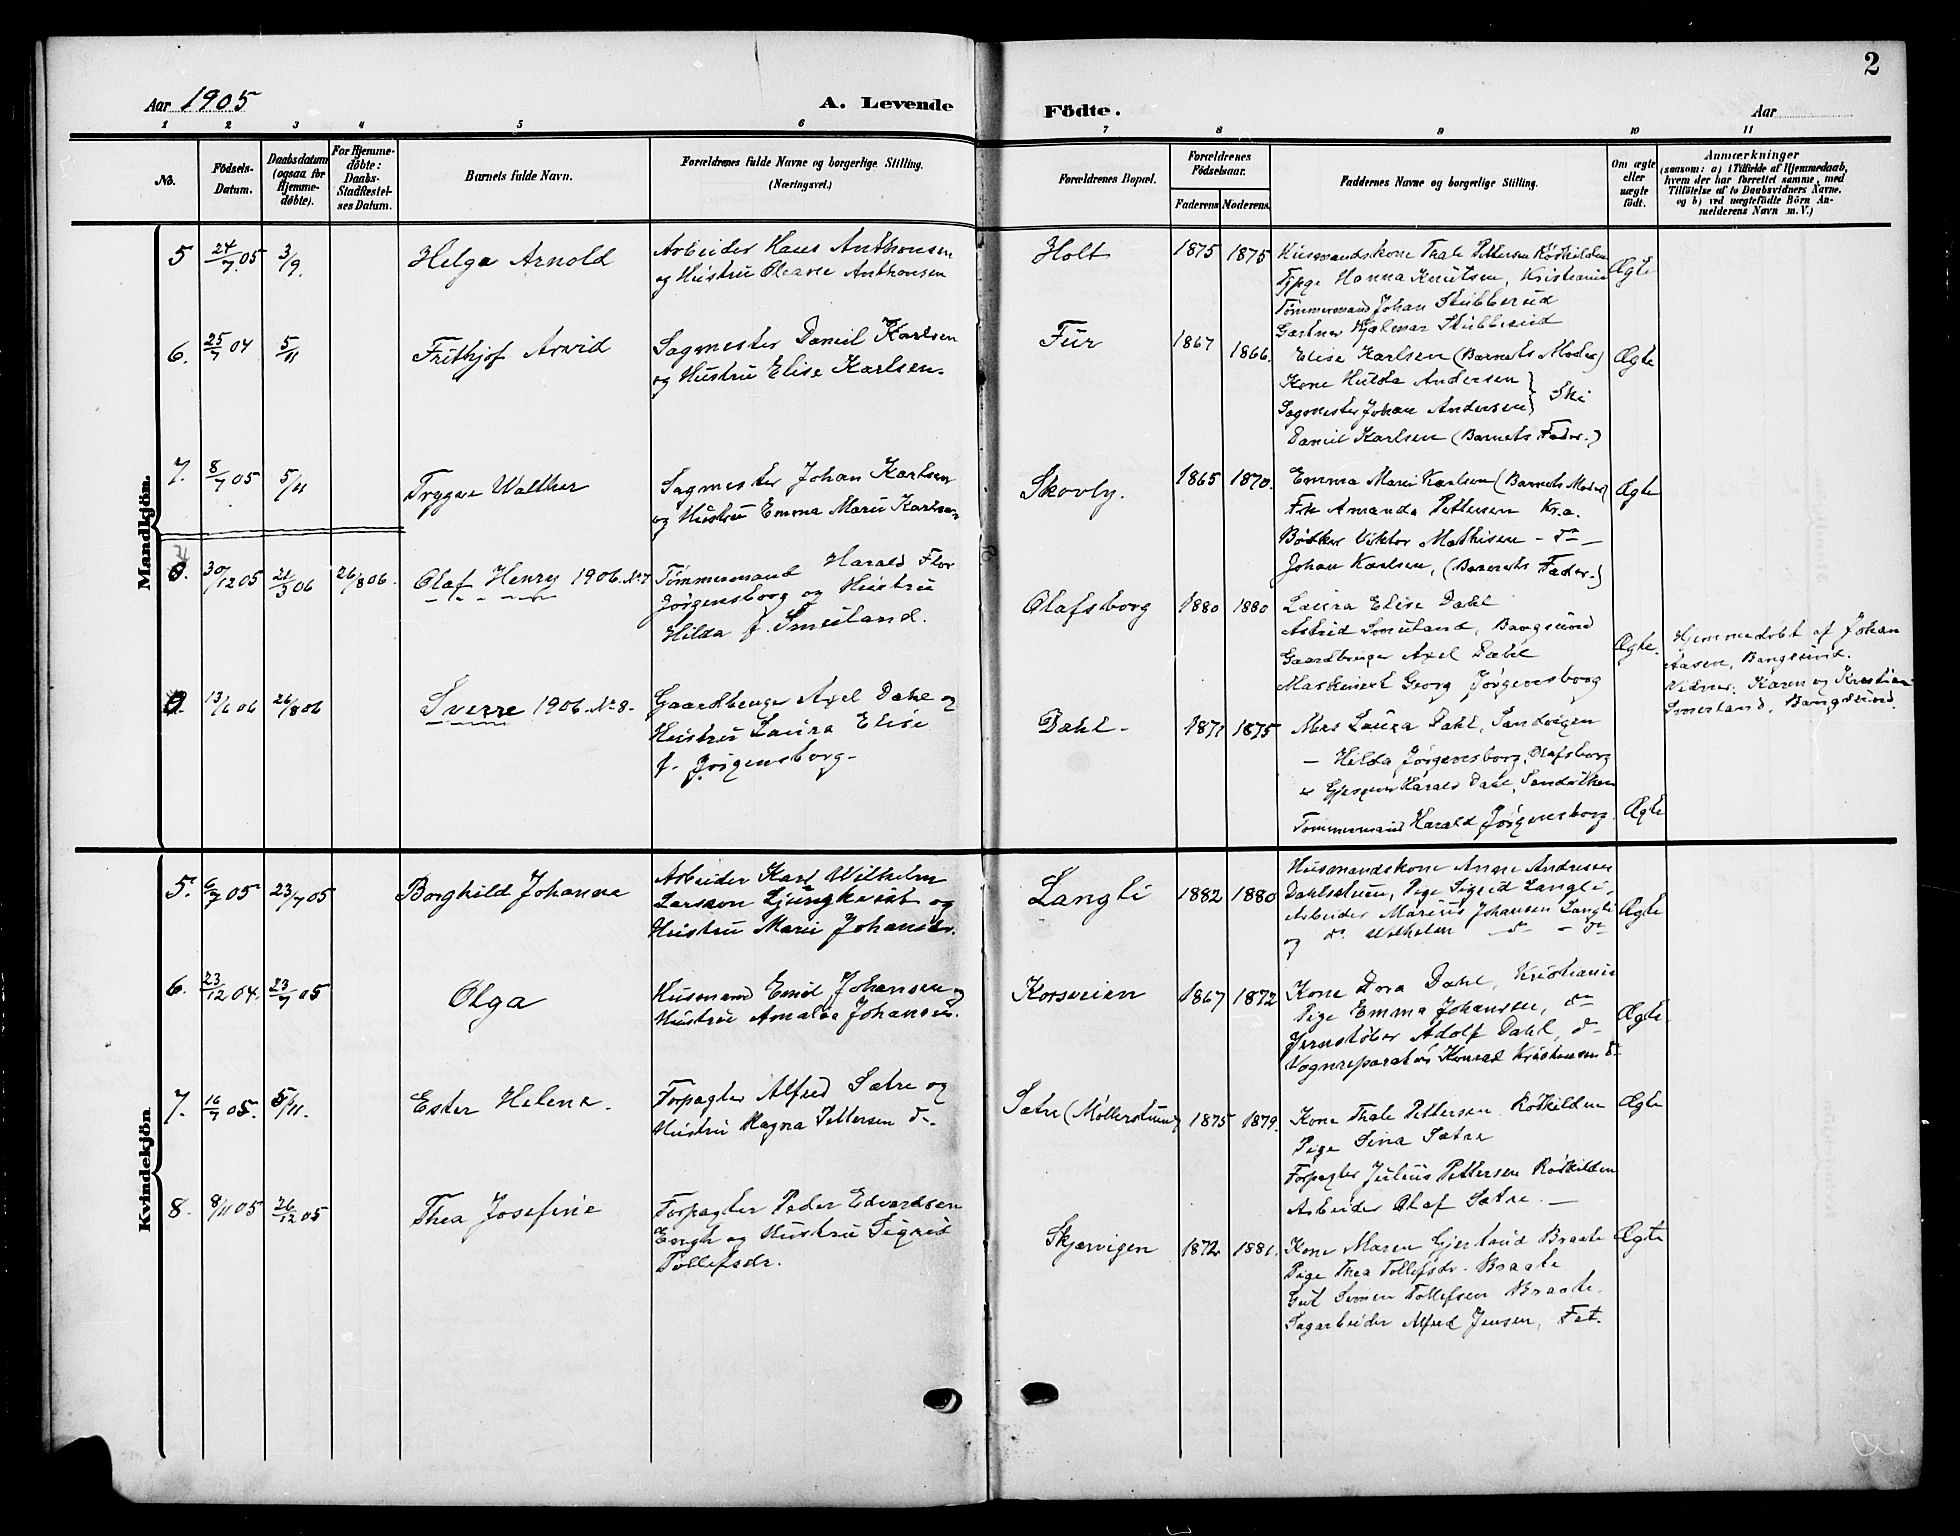 2
Aar 1905
A. Levende
Födte.
Aar
1 2 3 4 5 6 7 8 9 10 11
No.
Födsels-
Datum.
Daabsdatum
(ogsaa for
Hjemme-
døbte).
For Hjemme-
døbte:
Daabs-
Stadfæstel-
ses Datum.
Barnets fulde Navn.
Forældrenes fulde Navne og borgerlige Stilling.
(Næringsvei.)
Forældrenes Bopæl.
Forældrenes
Födselsaar.
Faderens
Moderens.
Faddernes Navne og borgerlige Stilling.
Om ægte
eller
uægte
födt.
Anmærkninger
(saasom: a) i Tilfælde af Hjemmedaab,
hvem der har forrettet samme, med
Tilföielse af to Daabsvidners Navne.
og b) ved uægtefödte Börn An-
melderens Navn m. V.)
Mandkjön.
5
24/7 05
3/9.
Helge Arnold
Arbeider Hans Anthonsen
og Hustru Oleane Anthonsen
Holt
1875
1875
Husmandskone Thale Pettersen Röskilden
Pige Hanna Knutsen, Kristiania
Tömmermand Johan Stubberud
Gartner Hjalmar Stubberud
Ægte
6.
25/7 04
5/11
Frithjof Arvid
Sagmester Daniel Karlsen
og Hustru Elise Karlsen.
Fur
1867
1866.
Elise Karlsen (Barnets Moder)
Kone Hulda Andersen
Sagmester Johan Andersen } Ski
Daniel Karlsen (Barnets Fader.)
Ægte
7.
8/7 05
5/11
Trygve Walther
Sagmester Johan Karlsen
og Hustru Emma Marie Karlsen
Skovly.
1865
1870.
Emma Marie Karlsen (Barnets Moder)
Frk Amanda Pettersen Kra.
Bödker Viktor Mathisen - do -
Johan Karlsen, (Barnets Fader.)
Ægte
30/12 05
26/3 06
26/8 06.
Olaf Henry 1906. No 7
Tömmermand Harald Flor
Jörgensborg og Hustru
Hilda f. Smeiland.
Olafsborg
1880
1880
Laura Elise Dahl
Astrid Smeiland, Bangsund
Gaardbruger Axel Dahl
Maskinist Georg Jörgensborg
Ægte.
Hjemmedöbt af Johan
Aasen, Bangsund.
Vidner: Karen og Kristian
Smeiland, Bangsund.
13/6 06
26/8 06
Sverre 1906. No 8.
Gaardbruger Axel Dahl og
Hustru Laura Elise
f. Jörgensborg.
Dahl.
1871
1875
Laura Dahl, Sandvigen
— Hilda Jörgensborg, Olafsborg
Harald Dahl, Sandviken
Tömmermand Harald Jörgensborg.
Ægte
Kvindekjön
5.
6/7 05
23/7 05
Borghild Johanne
Arbeider Karl Wilhelm
Larsson Ljungkvist og
Hustru Marie Johansdr.
Langli
1882
1880
Husmandskone Anne Andresen
Dahlsstuen, Pige Sigrid Langli,
Arbeider Marius Johansen Langli
og do Wilhelm do - do
Ægte
6.
23/12 04.
23/7 05
Olga
Husmand Emil Johansen og
Hustru Amalia Johansen.
Korsveien
1867
1872
Kone Dora Dahl, Kristiania
Pige Emma Johansen, do
Jernstöber Adolf Dahl, do
Vognreparatör Konrad Kristiansen do
Ægte.
7.
16/7 05.
5/11.
Ester Helene.
Forpagter Alfred Sætre og
Hustru Magna Pettersen do.
Sætre (Möllerstuen)
1875
1879.
Kone Thale Pettersen Röskilden
Pige Sina Sætre
Forpagter Julius Pettersen Röskilden
Arbeider Olaf Sætre. —
Ægte
8.
8/11 05
26/12 05
Thea Josefine
Forpagter Peder Edvardsen
Engh og Hustru Sigrid
Tollefsdr.
Skjærvigen
1872
1881.
Kone Maren Gjertrud Braate
Pige Thea Tollefsdr. Braate
Gut Simen Tollefsen Braate.
Sagarbeider Alfred Jensen, Fet.
Ægte